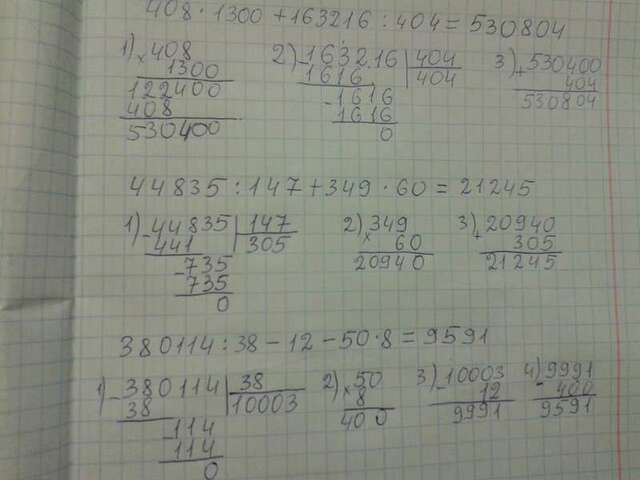 408 · 1300 + 163216 : 404 = 530804
1) × 408
1300
122400
408
530400
2) - 163216 | 404
1616 | 404
- 1616
1616
0
3) + 530400
404
530804
44835 : 147 + 349 · 60 = 21245
1) - 44835 | 147
441 | 305
- 735
735
0
2) × 349
60
20940
3) + 20940
305
21245
380114 : 38 - 12 - 50 · 8 = 9591
1) - 380114 | 38
38 | 10003
- 114
114
0
2) × 50
8
400
3) - 10003
12
9991
4) - 9991
400
9591